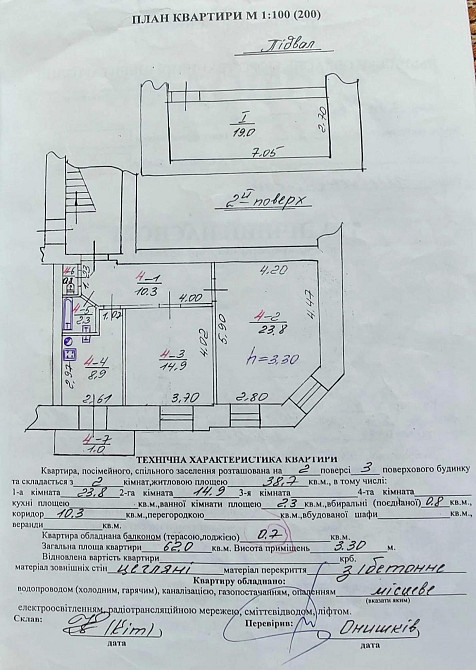 ПЛАН КВАРТИРИ М 1:100 (200)
Підвал
I
19.0
2.70
7.05
2й поверх
4-6
0.8
4-1
10.3
4.00
4.20
4-5
2.3
1.02
4-2
23.8
4.47
5.90
4.02
h=3,30
4-4
8,9
4-3
14,9
2,97
2,61
3,70
2,80
4-7
1.0
ТЕХНІЧНА ХАРАКТЕРИСТИКА КВАРТИРИ
Квартира, посімейного, спільного заселення розташована на 2 поверсі 3 поверхового будинку
та складається з 2 кімнат,житловою площею 38,7 кв.м., в тому числі:
1-а кімната 23,8 2-га кімната 14,9 3-я кімната 4-та кімната кв.м.,
кухні площею кв.м.,ванної кімнати площею 2,3 кв.м.,вбиральні (поєднаної) 0,8 кв.м.,
коридор 10.3 кв.м.,перегородкою кв.м.,вбудованої шафи кв.м.,
веранди кв.м.
Квартира обладнана балконом (терасою,лоджією) 0.7 кв.м.
Загальна площа квартири 62.0 кв.м. Висота приміщень 3.30 м.
Відновлена вартість квартири крб.
матеріал зовнішніх стін цегляні матеріал перекриття з/бетонне
Квартиру обладнано:
водопроводом (холодним, гарячим), каналізацією, газопостачанням, опаленням місцеве
(вказати яким)
електроосвітленням, радіотрансляційною мережею, сміттєвідводом, ліфтом.
Склав: (Кіт) Перевірив: Онишків
дата дата